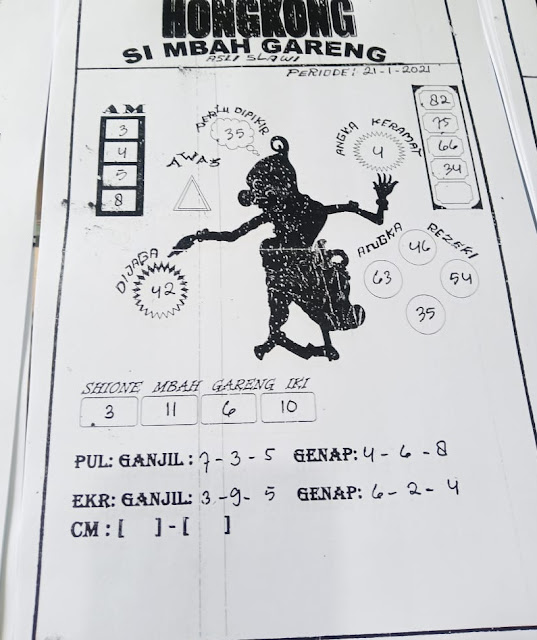 HONGKONG
SI MBAH GARENG
ASLI SLAWI
PERIODE: 21-1-2021
AM
3
4
5
8
PERLU DIPIKIR
35
AWAS
ANGKA KERAMAT
4
82
75
66
34
DIJAGA
42
ANGKA REZEKI
46
63
54
35
SHIONE MBAH GARENG IKI
3 11 6 10
PUL: GANJIL: 7 - 3 - 5 GENAP: 4 - 6 - 8
EKR: GANJIL: 3 - 9 - 5 GENAP: 6 - 2 - 4
CM : [ ] - [ ]